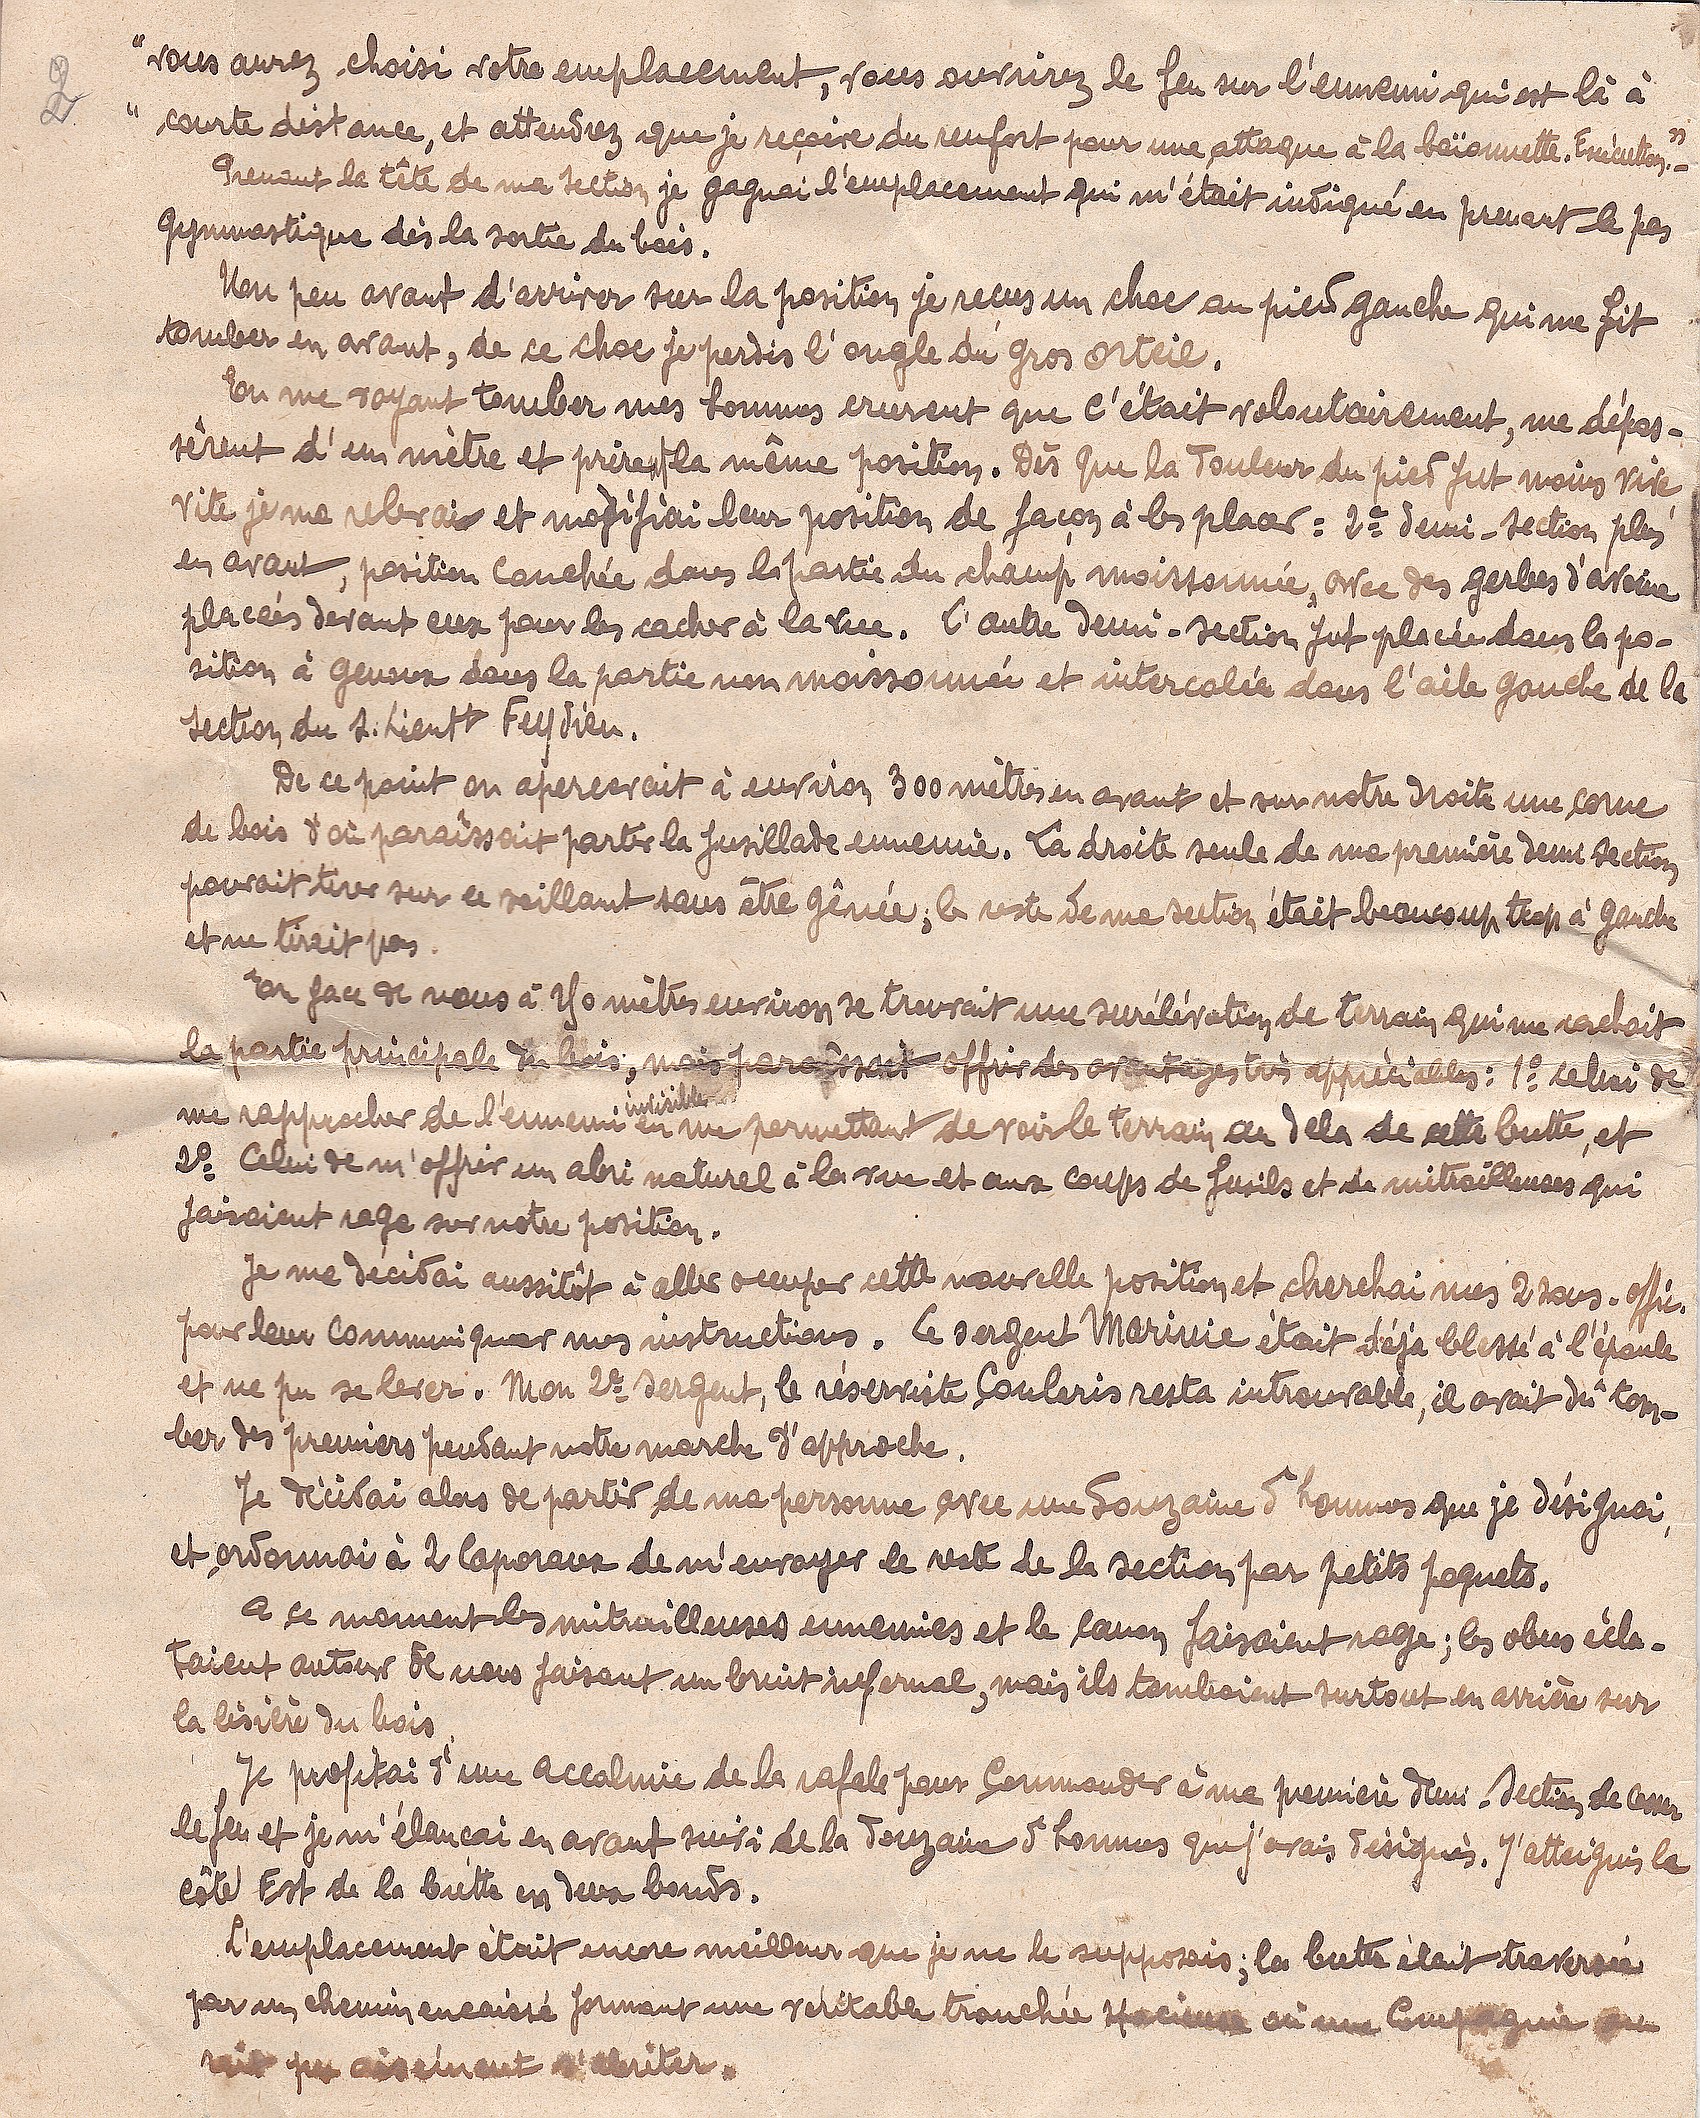 2
"vous aurez choisi votre emplacement, vous ouvrirez le feu sur l'ennemi qui est là à
" courte distance, et attendrez que je reçoive du renfort pour une attaque à la baïonnette. Exécution."-
Prenant la tête de ma section je gagnai l'emplacement qui m'était indiqué en prenant le pas
gymnastique dès la sortie du bois.
Non peu avant d'arriver sur la position je reçus un choc au pied gauche qui me fit
tomber en avant, de ce choc je perdis l'ongle du gros orteil.
En me voyant tomber mes hommes crurent que c'était volontairement, me dépas-
sèrent d'un mètre et prirent la même position. Dès que la douleur du pied fut moins vive
vite je me relevais et modifiai leur position de façon à les placer: 2e demi-section plus
en avant, position couchée dans la partie du champ moissonnée, avec des gerbes d'avoine
placées devant eux pour les cacher à la vue. L'autre demi-section fut placée dans la po-
sition à genoux dans la partie non moissonnée et intercalée dans l'aile gauche de la
section du S. Lieutt Feydieu.
De ce point on apercevait à environ 300 mètres en avant et sur notre droite une corne
de bois d'où paraîssait partir la fusillade ennemie. La droite seule de ma première demi section
pouvait tirer sur ce saillant sans être gênée; le reste de ma section était beaucoup trop à gauche
et ne tirait pas.
En face de nous à 150 mètres environ se trouvait une surélévation de terrain qui me cachait
la partie principale du bois; mais paraîssait offrir des avantages très appréciables: 1º celui de
me rapprocher de l'ennemi invisible en me permettant de voir le terrain au delà de cette butte, et
2º Celui de m'offrir un abri naturel à la vue et aux coups de fusils et de mitrailleuses qui
faisaient rage sur notre position.
Je me décidai aussitôt à aller occuper cette nouvelle position et cherchai mes 2 sous-offic.
pour leur communiquer mes instructions. Le sergent Marinie était déjà blessé à l'épaule
et ne pu se lever. Mon 2e sergent, le réserviste Couleris resta introuvable, il avait dû tom-
ber des premiers pendant notre marche d'approche.
Je décidai alors de partir de ma personne avec une douzaine d'hommes que je désignai,
et ordonnai à 2 Caporaux de m'envoyer le reste de la section par petits paquets.
A ce moment les mitrailleuses ennemies et le canon faisaient rage; les obus écla-
taient autour de nous faisant un bruit infernal, mais ils tombaient surtout en arrière sur
la lisière du bois.
Je profitai d'une accalmie de la rafale pour Commander à ma première demi-section de cesser
le feu et je m'élançai en avant suivi de la douzaine d'hommes que j'avais désignés. J'atteignis le
côté Est de la butte en deux bonds.
L'emplacement était encore meilleur que je ne le supposais; la butte était traversée
par un chemin encaissé formant une véritable tranchée spacieuse où une Compagnie au-
rait pu aisément s'abriter.